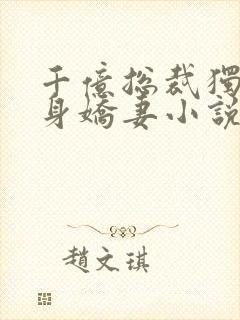 千億總裁獨
身嬌妻小説
趙文琪